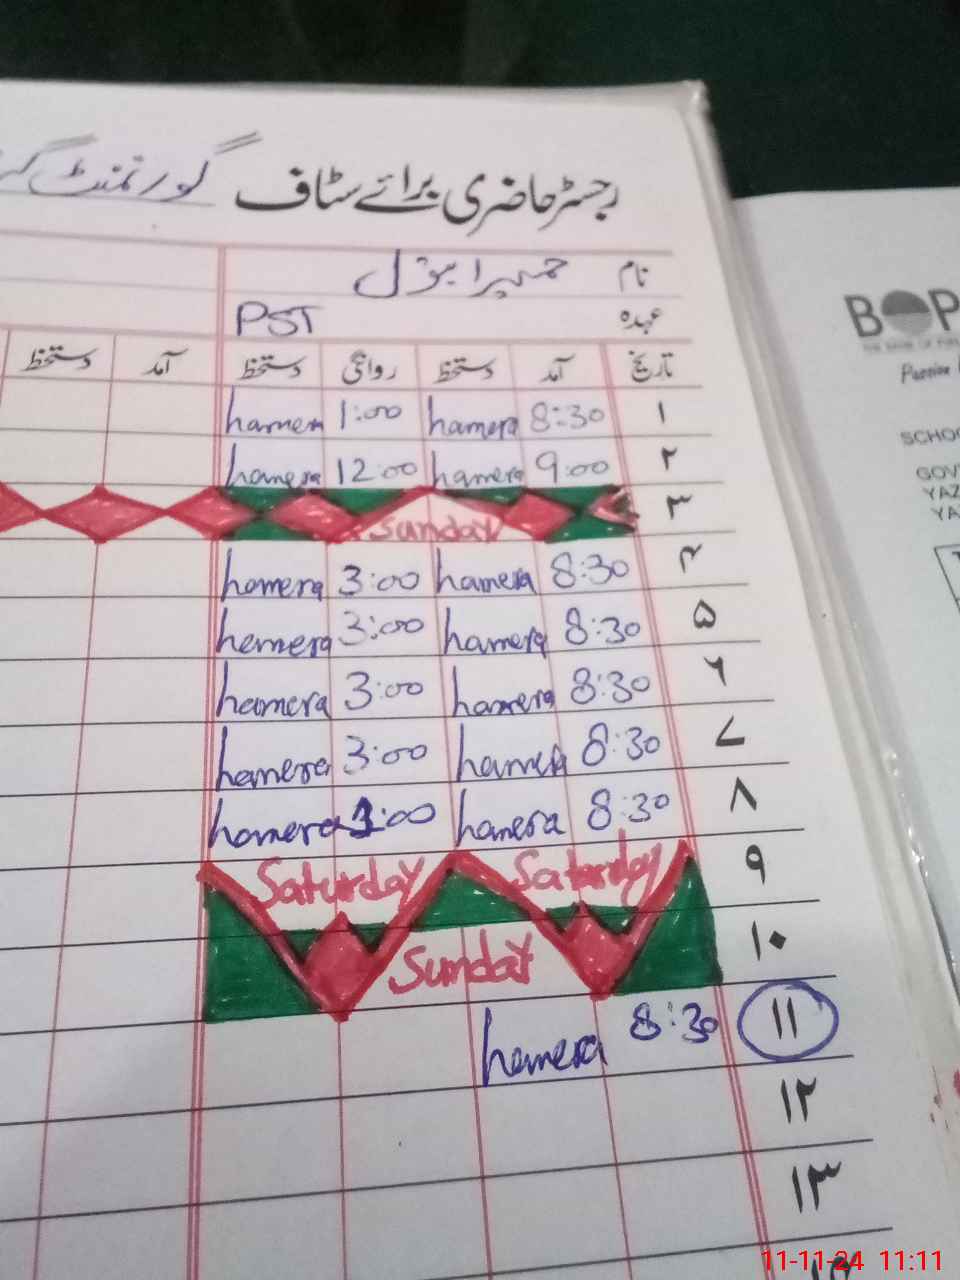 رجسٹر حاضری برائے سٹاف گورنمنٹ
نام حمیرا بتول
عہدہ PST
تاریخ آمد دستخط روانگی دستخط آمد دستخط
۱ 8:30 hamera 1:00 hamera
۲ 9:00 hamera 12:00 hamera
۳ Sunday
۴ 8:30 hamera 3:00 hamera
۵ 8:30 hamera 3:00 hemera
۶ 8:30 hamera 3:00 hamera
۷ 8:30 hamera 3:00 hamera
۸ 8:30 hamera 1:00 hamera
۹ Saturday Saturday
۱۰ Sunday
۱۱ 8:30 hamera
۱۲
۱۳
BOP
THE BANK OF PUN
Passion
SCHOO
GOV
YAZ
YAZ
11-11-24 11:11